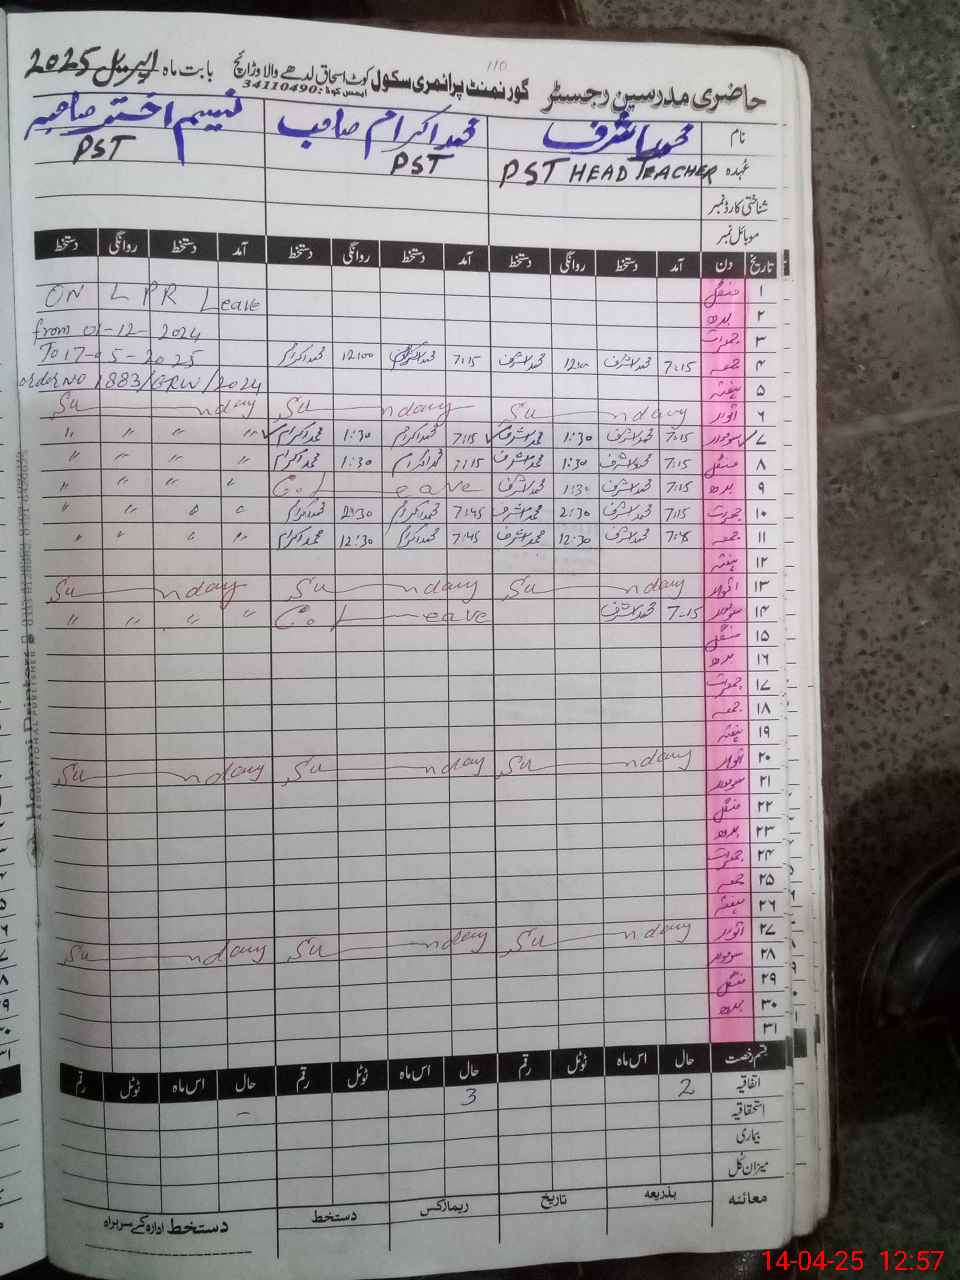 110
حاضری مدرسین رجسٹر گورنمنٹ پرائمری سکول کوٹ اسحاق لدھے والا وڑائچ بابت ماہ اپریل 2025
ایمس کوڈ: 34110490
نام محمد اشرف محمد اکرام صاحب نسیم اختر صاحبہ
عہدہ PST HEAD TEACHER PST PST
شناختی کارڈ نمبر
موبائل نمبر
تاریخ دن آمد دستخط روانگی دستخط آمد دستخط روانگی دستخط آمد دستخط روانگی دستخط
۱ منگل ON LPR Leave
۲ بدھ
۳ جمعرات from 01-12-2024
۴ جمعہ 7:15 محمد اشرف 12:00 محمد اشرف 7:15 محمد اکرام 12:00 محمد اکرام To 17-05-2025
۵ ہفتہ order NO 1883/GRW/2024
۶ اتوار Sunday Sunday Sunday
۷ سوموار 7:15 محمد اشرف 1:30 محمد اشرف 7:15 محمد اکرام 1:30 محمد اکرام " " " "
۸ منگل 7:15 محمد اشرف 1:30 محمد اشرف 7:15 محمد اکرام 1:30 محمد اکرام " " " "
۹ بدھ 7:15 محمد اشرف 1:30 محمد اشرف C.L Leave " " " "
۱۰ جمعرات 7:15 محمد اشرف 2:30 محمد اشرف 7:45 محمد اکرام 2:30 محمد اکرام " " " "
۱۱ جمعہ محمد اشرف 12:30 محمد اشرف 7:45 محمد اکرام 12:30 محمد اکرام " " " "
۱۲ ہفتہ
۱۳ اتوار Sunday Sunday Sunday
۱۴ سوموار 7:15 محمد اشرف C.L Leave " " " "
۱۵ منگل
۱۶ بدھ
۱۷ جمعرات
۱۸ جمعہ
۱۹ ہفتہ
۲۰ اتوار Sunday Sunday Sunday
۲۱ سوموار
۲۲ منگل
۲۳ بدھ
۲۴ جمعرات
۲۵ جمعہ
۲۶ ہفتہ
۲۷ اتوار Sunday Sunday Sunday
۲۸ سوموار
۲۹ منگل
۳۰ بدھ
۳۱
قسم رخصت حال اس ماہ ٹوٹل رقم حال اس ماہ ٹوٹل رقم حال اس ماہ ٹوٹل رقم
اتفاقیہ 2 3 -
استحقاقیہ
بیماری
میزان کل
معائنہ بذریعہ تاریخ ریمارکس دستخط دستخط ادارہ کے سربراہ
Hashmi Printers
14-04-25 12:57